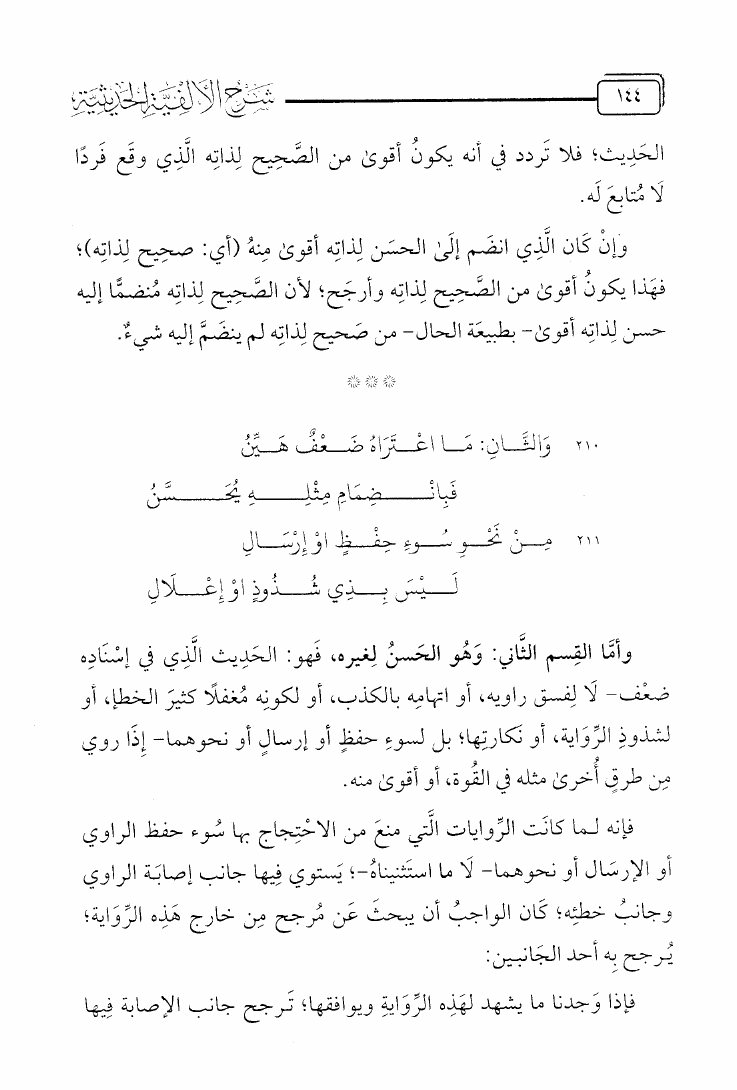 ١٤٤
شرح الألفية الحديثية
الحَدِيث؛ فلا تَردد في أنه يكونُ أقوىٰ من الصَّحِيح لِذاتِه الَّذِي وقَع فَردًا
لَا مُتابعَ لَه.
وإنْ كَان الَّذِي انضَم إلَىٰ الحسَن لِذاتِه أقوىٰ مِنهُ (أي: صحِيح لِذاتِه)؛
فهَذا يكونُ أقوىٰ من الصَّحِيح لِذاتِه وأرجَح؛ لأن الصَّحِيح لِذاتِه مُنضمًّا إليه
حسن لِذاتِه أقوىٰ- بطبيعَة الحال- من صَحيح لِذاتِه لم ينضَمَّ إليه شيءٌ.
٢١٠ وَالثَّـانِ: مَـا اعْـتَرَاهُ ضَـعْفٌ هَـيِّنُ
فَبِانْـضِمَامِ مِثْلِـهِ يُحَـسَّنُ
٢١١ مِـنْ نَحْـوِ سُـوءِ حِفْـظٍ اوْ إِرْسَـالِ
لَـيْسَ بِـذِي شُـذُوذٍ اوْ إِعْـلَالِ
وأمَّا القِسم الثَّاني: وَهُو الحَسنُ لِغيره، فَهو: الحَدِيث الَّذِي في إسْنَادِه
ضعْف- لَا لِفسق راويه، أو اتهامِه بالكذب، أو لكونِه مُغفلًا كثيرَ الخطإ، أو
لشذوذِ الرِّوَاية، أو نَكارتِها؛ بل لسوءِ حفظٍ أو إرسالٍ أو نحوهما- إِذَا روي
مِن طرقٍ أُخرىٰ مثله في القُوة، أو أقوىٰ منه.
فإنه لـما كانَت الرِّوايات الَّتي منعَ من الاحْتِجاج بها سُوء حفظ الراوي
أو الإرسَال أو نحوهما- لَا ما استَثنيناهُ-؛ يَستوي فِيها جانب إصابَة الراوي
وجانبُ خطئِه؛ كَان الواجبُ أن يبحثَ عَن مُرجح مِن خارج هَذِه الرِّوَاية؛
يُرجح بِه أحد الجَانبين:
فإذا وَجدنا ما يشهد لهَذِه الرِّوَايةِ ويوافقها؛ تَرجح جانب الإصابة فِيها